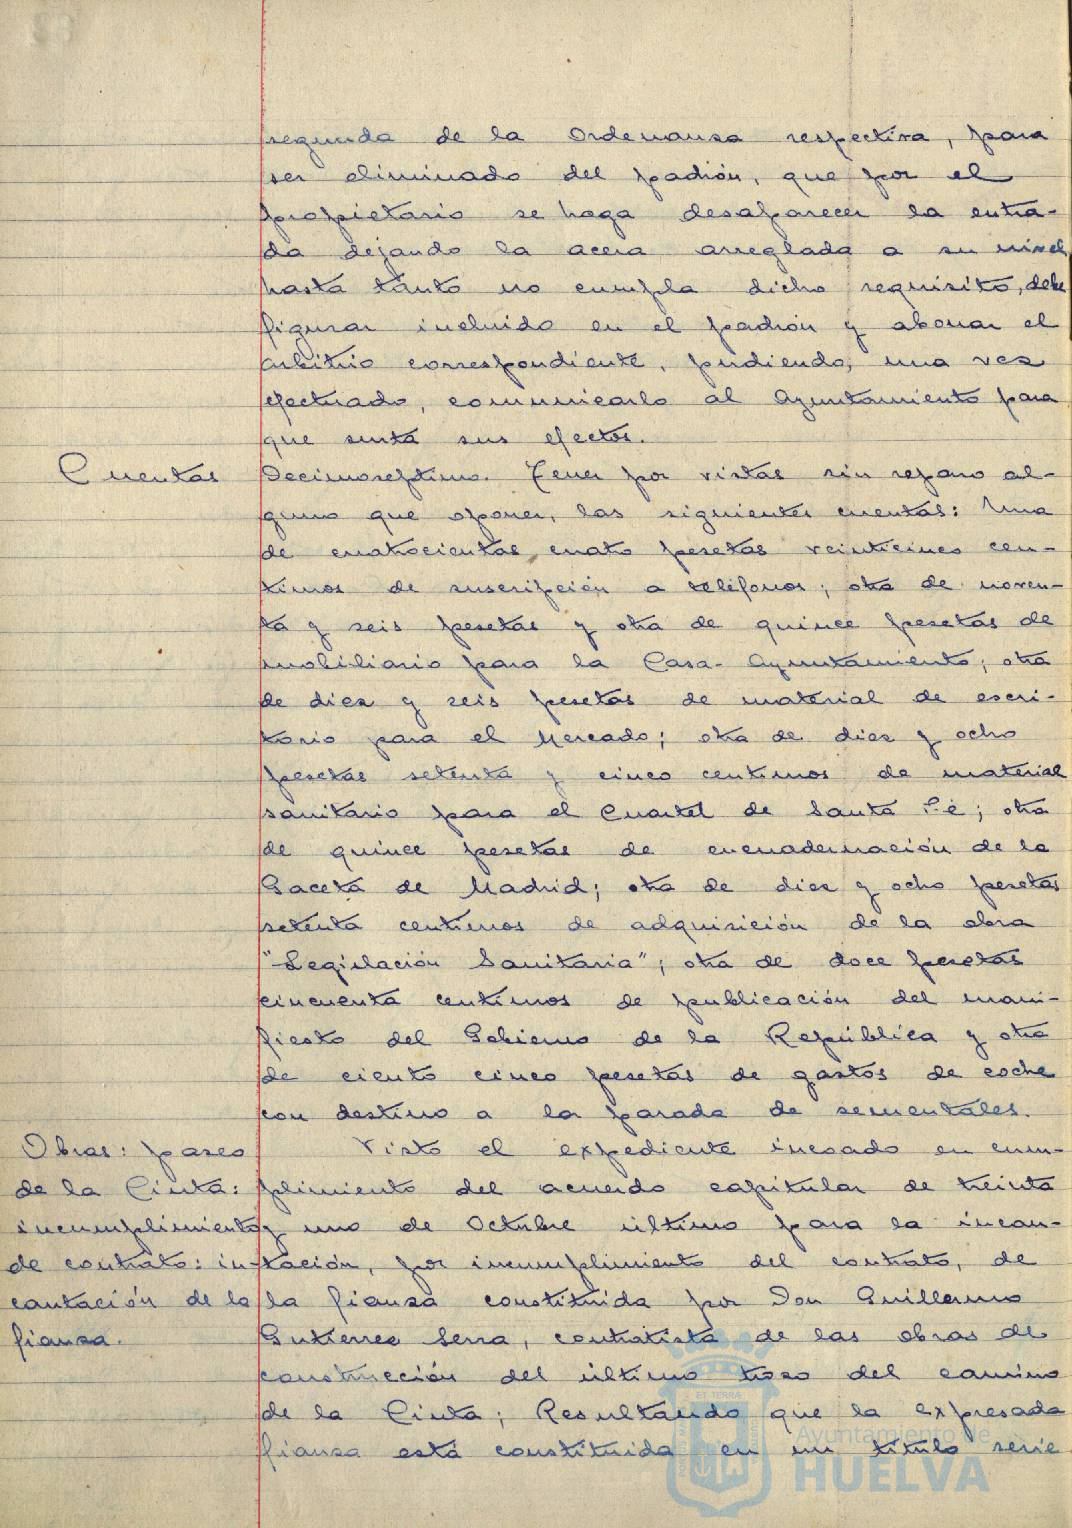 segunda de la Ordenansa respectiva, para
ser eliminado del padrón, que por el
propietario se haga desaparecer la entra-
da dejando la acera arreglada a su nivel
hasta tanto no cumpla dicho requisito, debe
figurar incluido en el padrón y abonar el
arbitrio correspondiente, pudiendo, una ves
efectuado, comunicarlo al Ayuntamiento para
que surta sus efectos.
Cuentas
Decimoseptimo. Tener por vistas sin reparo al-
guno que oponer, las siguientes cuentas: Una
de cuatrocientas cuatro pesetas veinticinco cen-
timos de suscripción a teléfonos; otra de noven-
ta y seis pesetas y otra de quince pesetas de
mobiliario para la Casa-Ayuntamiento; otra
de dies y seis pesetas de material de escri-
torio para el Mercado; otra de dies y ocho
pesetas setenta y cinco centimos de material
sanitario para el Cuartel de Santa Fé; otra
de quince pesetas de encuadernación de la
Gaceta de Madrid; otra de dies y ocho pesetas
setenta centimos de adquisición de la obra
"Legislación Sanitaria"; otra de doce pesetas
cincuenta centimos de publicación del mani-
fiesto del Gobierno de la República y otra
de ciento cinco pesetas de gastos de coche
con destino a la parada de sementales.
Obras: paseo
de la Cinta:
incumplimiento
de contrato: in-
cautación de la
fiansa.
Visto el expediente incoado en cum-
plimiento del acuerdo capitular de treinta
y uno de Octubre último para la incau-
tación, por incumplimiento del contrato, de
la fiansa constituida por Don Guillermo
Gutierres Serra, contratista de las obras de
construcción del último troso del camino
de la Cinta; Resultando que la expresada
fiansa está constituida en un título serie
Ayuntamiento de
HUELVA